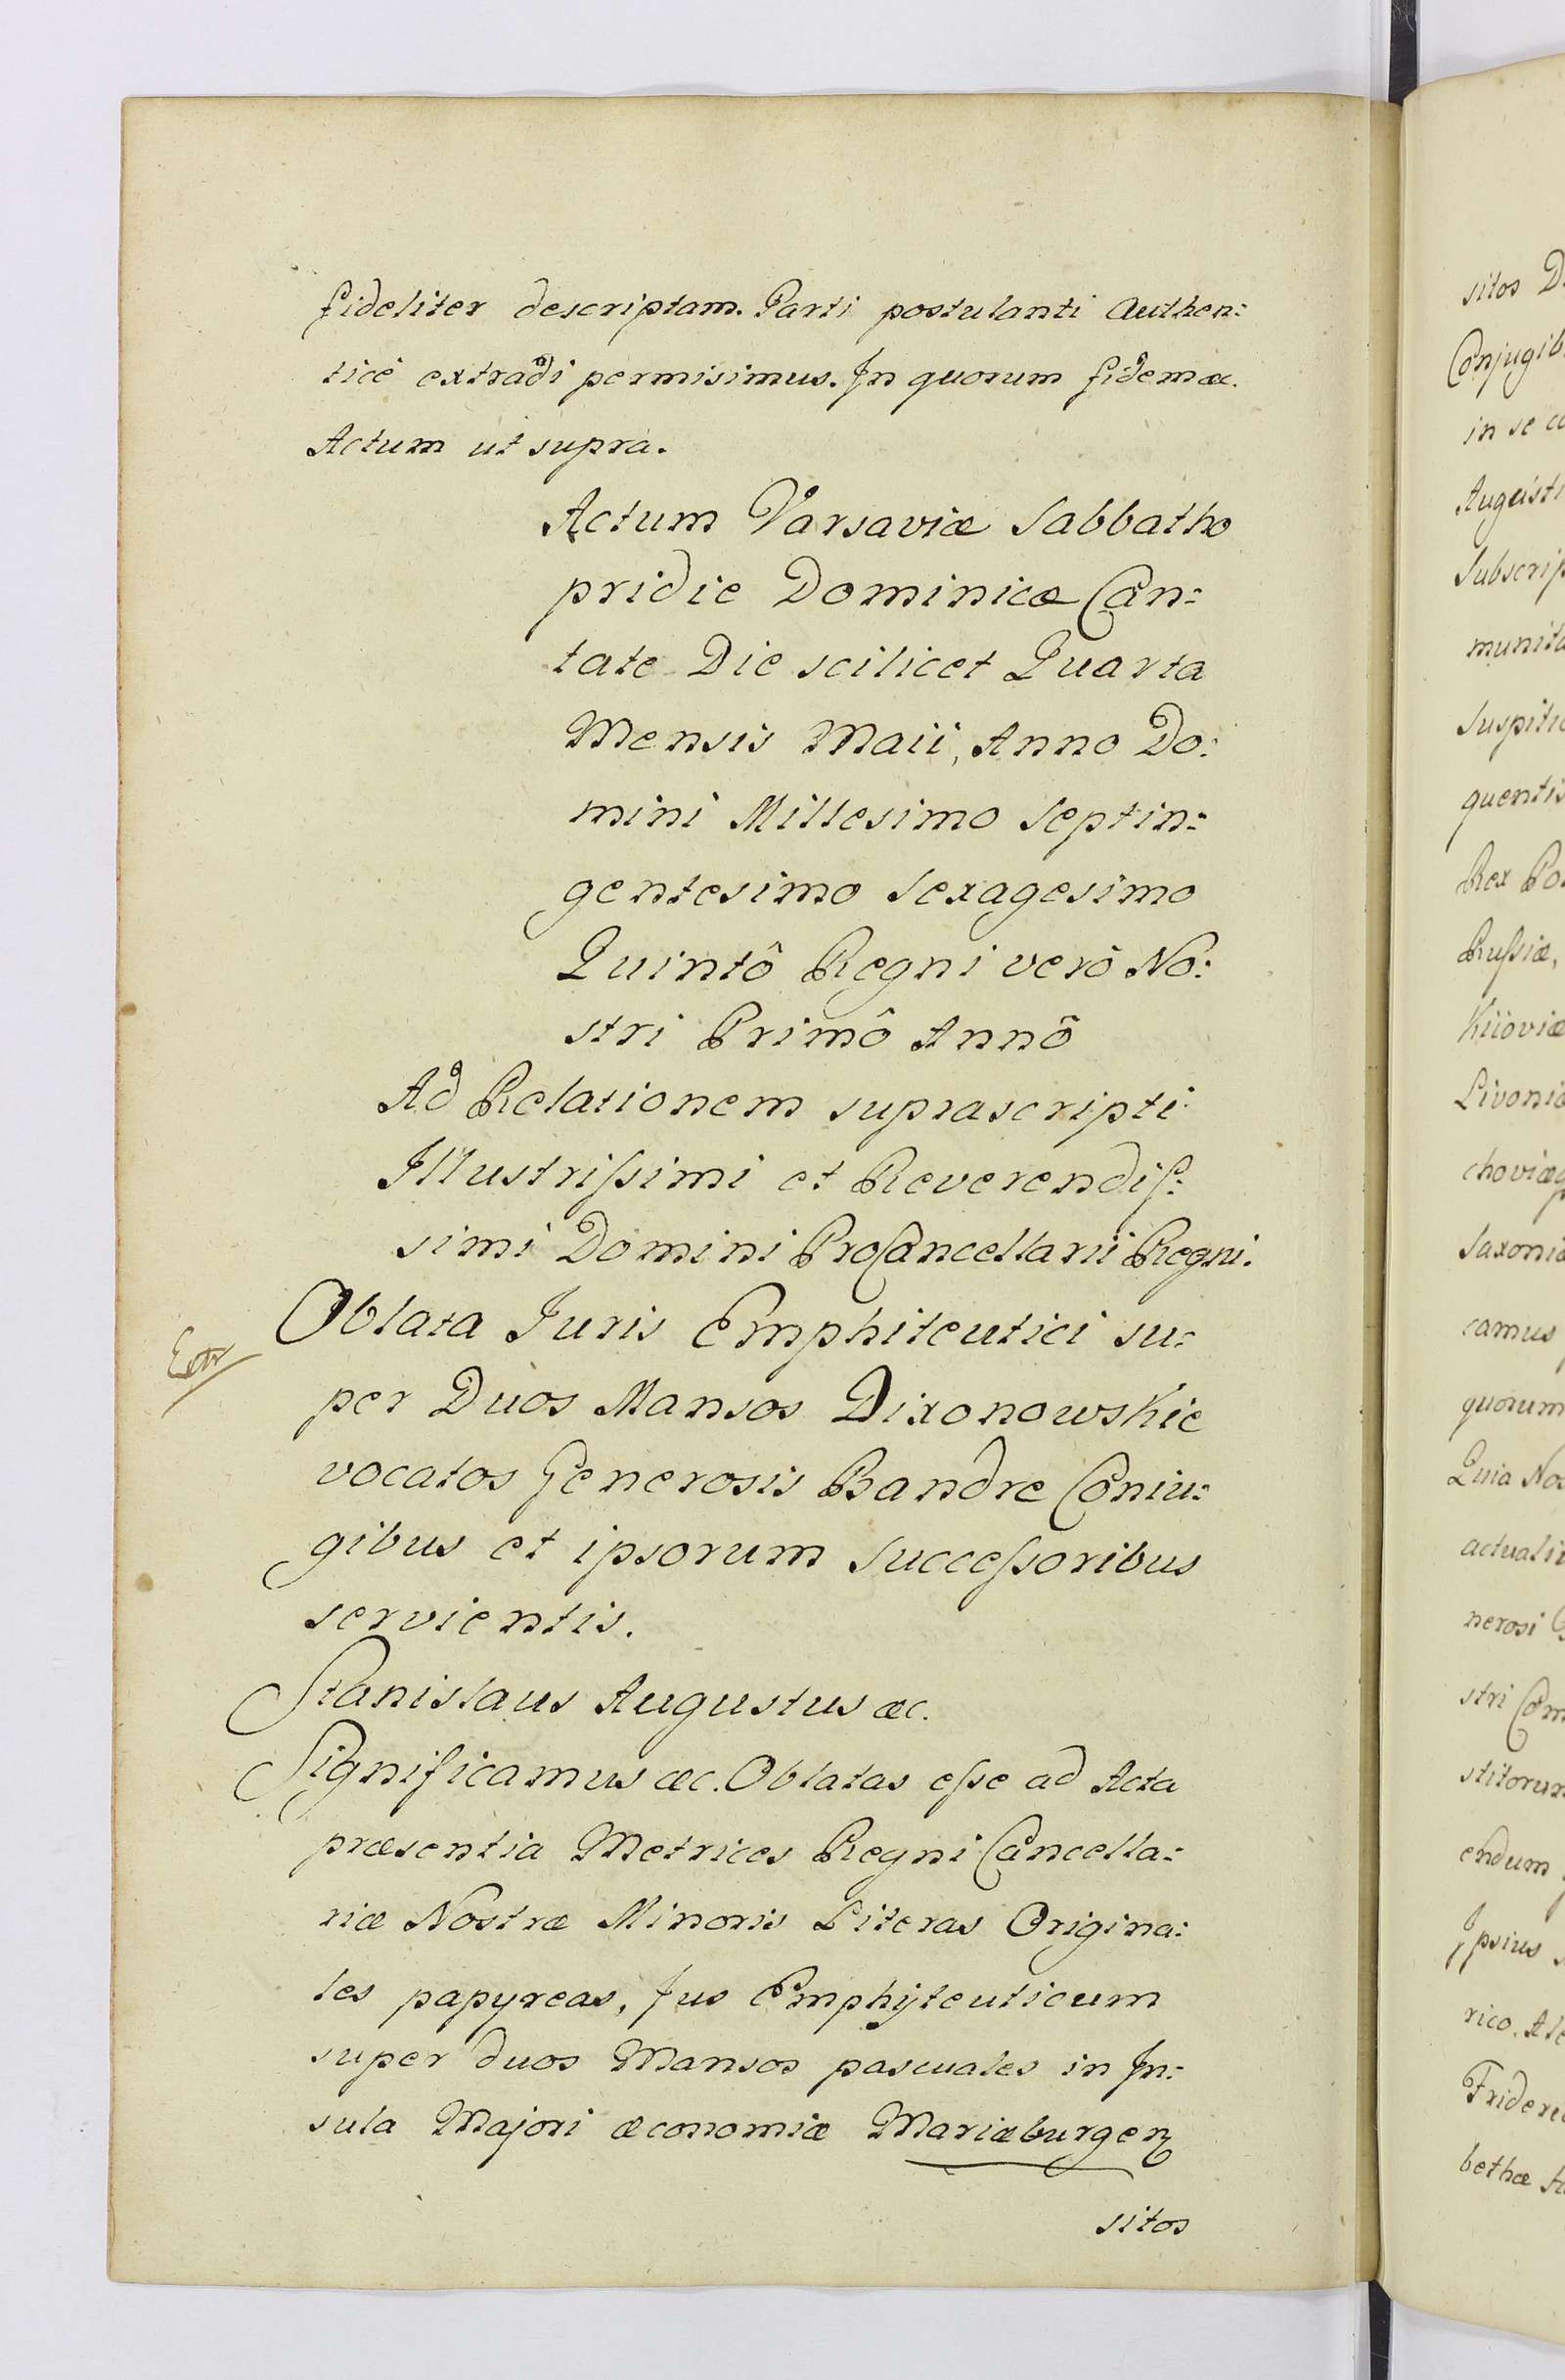 fideliter descriptam. Parti postulanti Authen:
ticè extradi permisimus. In quorum fidem &c.
Actum ut supra.
Actum Varsaviæ Sabbatho
pridie Dominicæ Can:
tate Die scilicet Quarta
Mensis Maii, Anno Do:
mini Millesimo Septin:
gentesimo Sexagesimo
Quintô Regni verô No:
stri Primô Annô
Ad Relationem suprascripti
Illustrissimi et Reverendis:
simi Domini ProCancellarii Regni.
Oblata Iuris Emphiteutici su:
per Duos Mansos Dixonowskie
vocatos Generosis Bandre Coniu:
gibus et ipsorum Successoribus
servientis.
Stanislaus Augustus &c.
Significamus &c. Oblatas esse ad Acta
præsentia Metrices Regni Cancella:
riæ Nostræ Minoris Literas Origina:
les papyreas, Jus Emphijteuticum
super duos Mansos pascuales in In:
sula Majori œconomiæ Mariæburgen
sitos
sitos
Conjugib
in se
August
Subscrip
munit
Suspiti
quentis
Rex Po
Russiæ,
Kiioviæ
Livoniæ
choviæq
Saxoniæ
camus
quorum
Quia Nos
actuali
nerosi
stri Com
stitorum
endum
Ipsius
rico. Ale
Frideri
bethæ